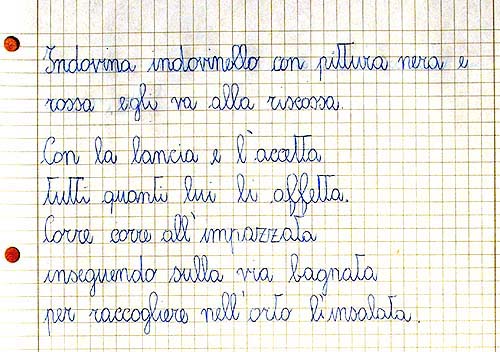 Indovina indovinello con pittura nera e
rossa egli va alla riscossa.
Con la lancia e l'accetta
tutti quanti lui li affetta.
Corre corre all'impazzata
inseguendo sulla via bagnata
per raccogliere nell'orto l'insalata.